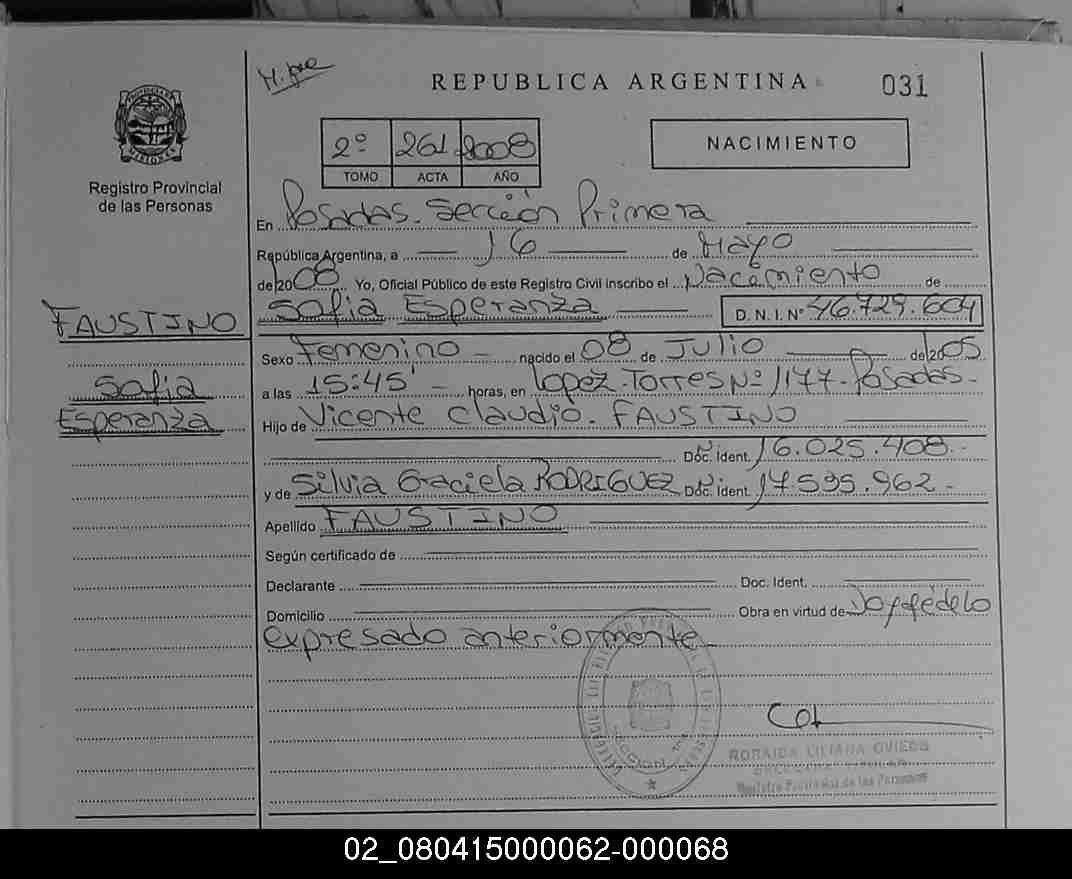 REPUBLICA ARGENTINA
031
2º 261 2008
TOMO ACTA AÑO
NACIMIENTO
PROVINCIA DE MISIONES
Registro Provincial
de las Personas
En Posadas. Sección Primera
República Argentina, a 16 de Mayo
de 2008 Yo, Oficial Público de este Registro Civil inscribo el Nacimiento de
Sofia Esperanza D.N.I.Nº 46.729.604
FAUSTINO
Sofia
Esperanza
Sexo Femenino - nacido el 08 de Julio de 2005
a las 15:45' - horas, en Lopez Torres Nº 1177-Posadas-
Hijo de Vicente Claudio. FAUSTINO
Doc. Ident. 16.025.408.-
y de Silvia Graciela RODRIGUEZ Doc. Ident. 17.595.962-
Apellido FAUSTINO
Según certificado de
Declarante Doc. Ident.
Domicilio Obra en virtud de Doy fé de lo
expresado anteriormente
RORAIDA LILIANA OVIEDO
Registro Provincial de las Personas
02_080415000062-000068